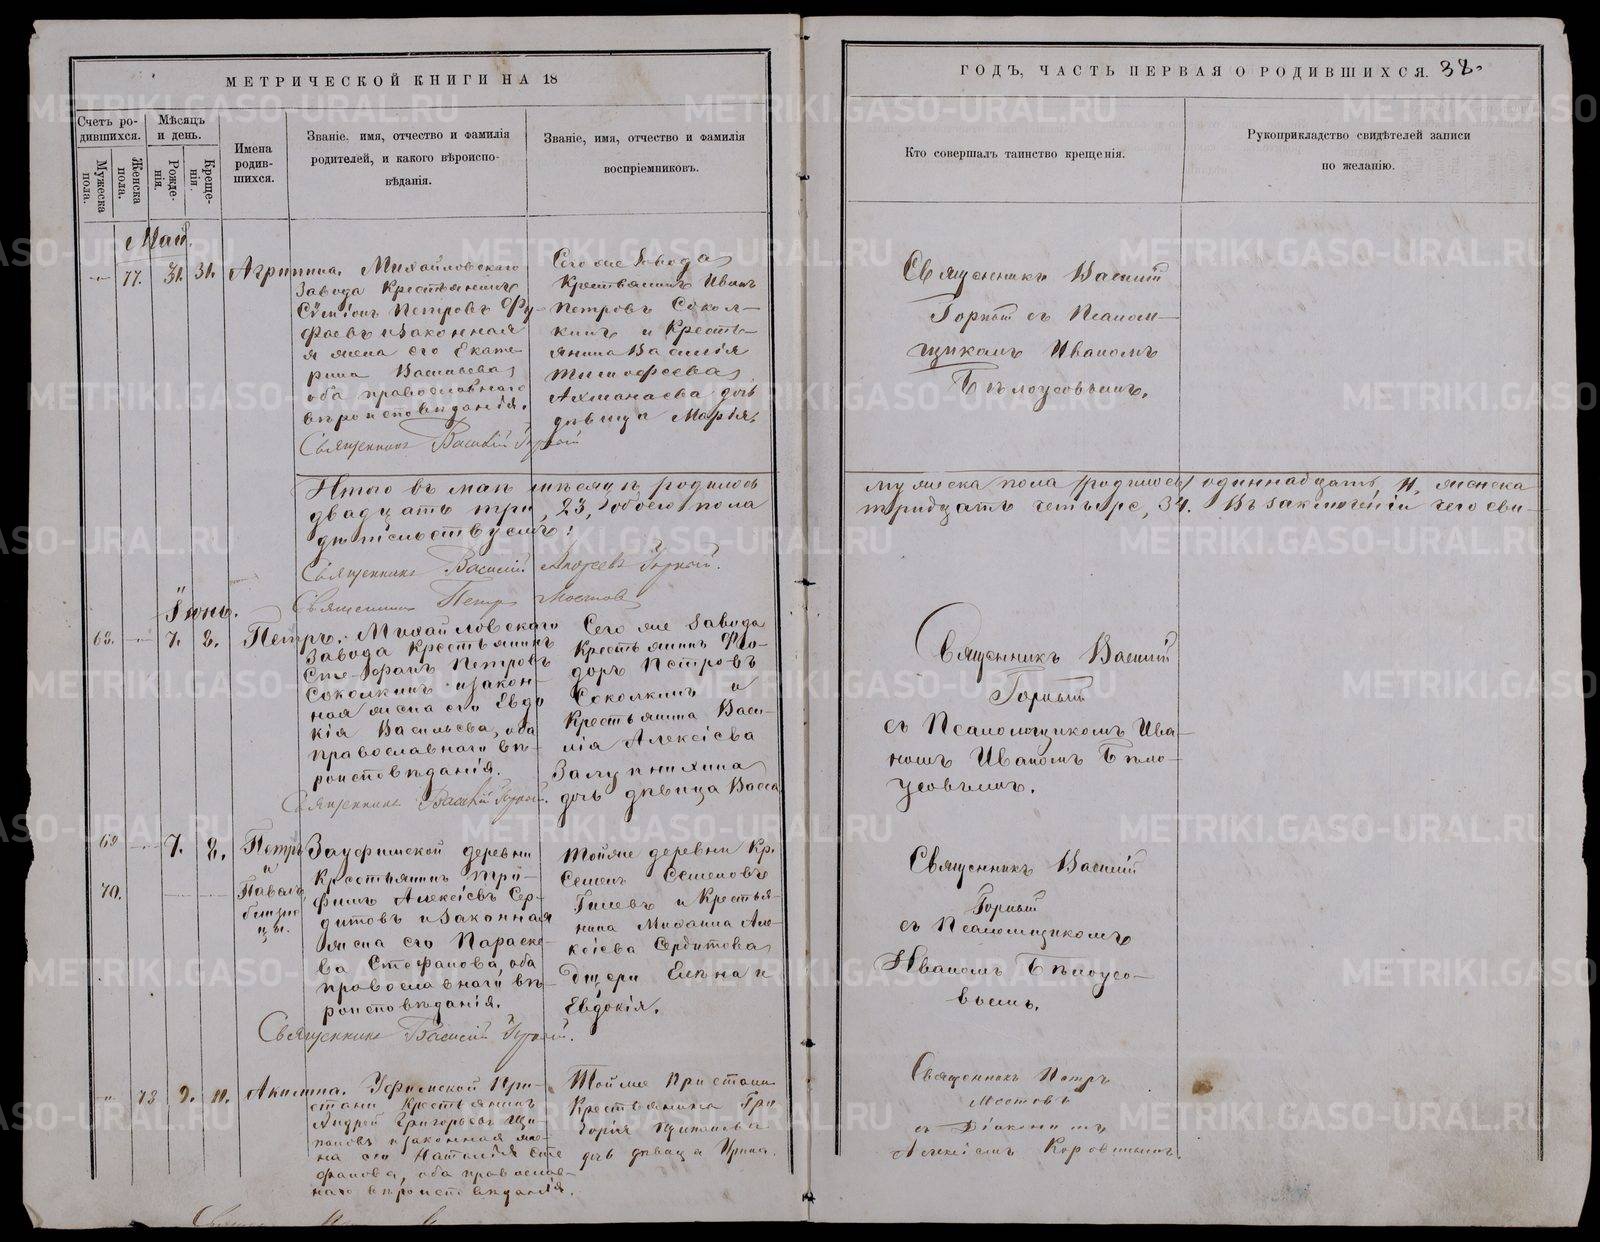 МЕТРИЧЕСКОЙ КНИГИ НА 18
ГОДЪ, ЧАСТЬ ПЕРВАЯ О РОДИВШИХСЯ. 38.
Счетъ ро-
дившихся.
Мужеска
пола.
Женска
пола.
Мѣсяцъ
и день.
Рожде-
нія.
Креще-
нія.
Имена
родив-
шихся.
Званіе, имя, отчество и фамилія
родителей, и какого вѣроиспо-
вѣданія.
Званіе, имя, отчество и фамилія
воспріемниковъ.
Кто совершалъ таинство крещенія.
Рукоприкладство свидѣтелей записи
по желанію.
Май.
77. 31. 31. Агрипина.
Михайловскаго
Завода Крестьянинъ
Сѵмеонъ Петровъ
и законная
я жена его Екате-
рина Васильева
оба православнаго
вѣроисповѣданія.
Священникъ Василій Горный
Сего же Завода
Крестьянинъ Иванъ
Петровъ Сокол-
кинъ и Кресть-
янина Василія
Тимофеева
дочь
дѣвица Марія.
Священникъ Василій
Горный съ Псалом-
щикомъ Иваномъ
Бѣлоусовымъ.
Итого въ маѣ мѣсяцѣ родилось
мужеска пола (родилось) одиннадцать, 11, женска
двадцать три, 23, обоего пола
тридцать четыре, 34. Въ заключеніи чего сви-
дѣтельствуемъ:
Священникъ Василій Горный.
Священникъ Петръ Мостовъ
Іюнь.
68. 7. 8. Петръ.
Михайловскаго
Завода Крестьянинъ
Стефанъ Петровъ
Соколкинъ и закон-
ная жена его Евдо
кія Васильева, оба
православнаго вѣ-
роисповѣданія.
Священникъ Василій Горный.
Сего же Завода
Крестьянинъ Фео-
доръ Петровъ
Соколкинъ и
Крестьянина Васи-
лія Алексіева
дочь дѣвица Васса
Священникъ Василій
Горный
съ Псаломщикомъ Ива-
номъ Иваномъ Бѣло-
усовымъ.
69 7. 8. Петръ
и
70. Павелъ,
близне-
цы.
Зауфимской деревни
Крестьянинъ Три-
фонъ Алексіевъ Сер-
дитовъ и законная
жена его Параске-
ва Стефанова, оба
православнаго вѣ-
роисповѣданія.
Священникъ Василій Горный.
Тойже деревни Кр.
Семенъ Семеновъ
и Крестья-
нина Михаила Але-
ксіева Сердитова
дщери Елена и
Евдокія.
Священникъ Василій
Горный
съ Псаломщикомъ
Иваномъ Бѣлоусо-
вымъ.
78 9. 11. Акилина.
Уфимской При-
стани Крестьянинъ
Андрей Григорьевъ
и законная же-
на его Наталія Сте
фанова, оба православ-
наго вѣроисповѣданія.
Тойже Пристани
Крестьянина Гри
горія
дочь дѣвица Ирина.
Священникъ Петръ
Мостовъ
съ Діакономъ
Алексіемъ Коровинымъ.
METRIKI.GASO-URAL.RU